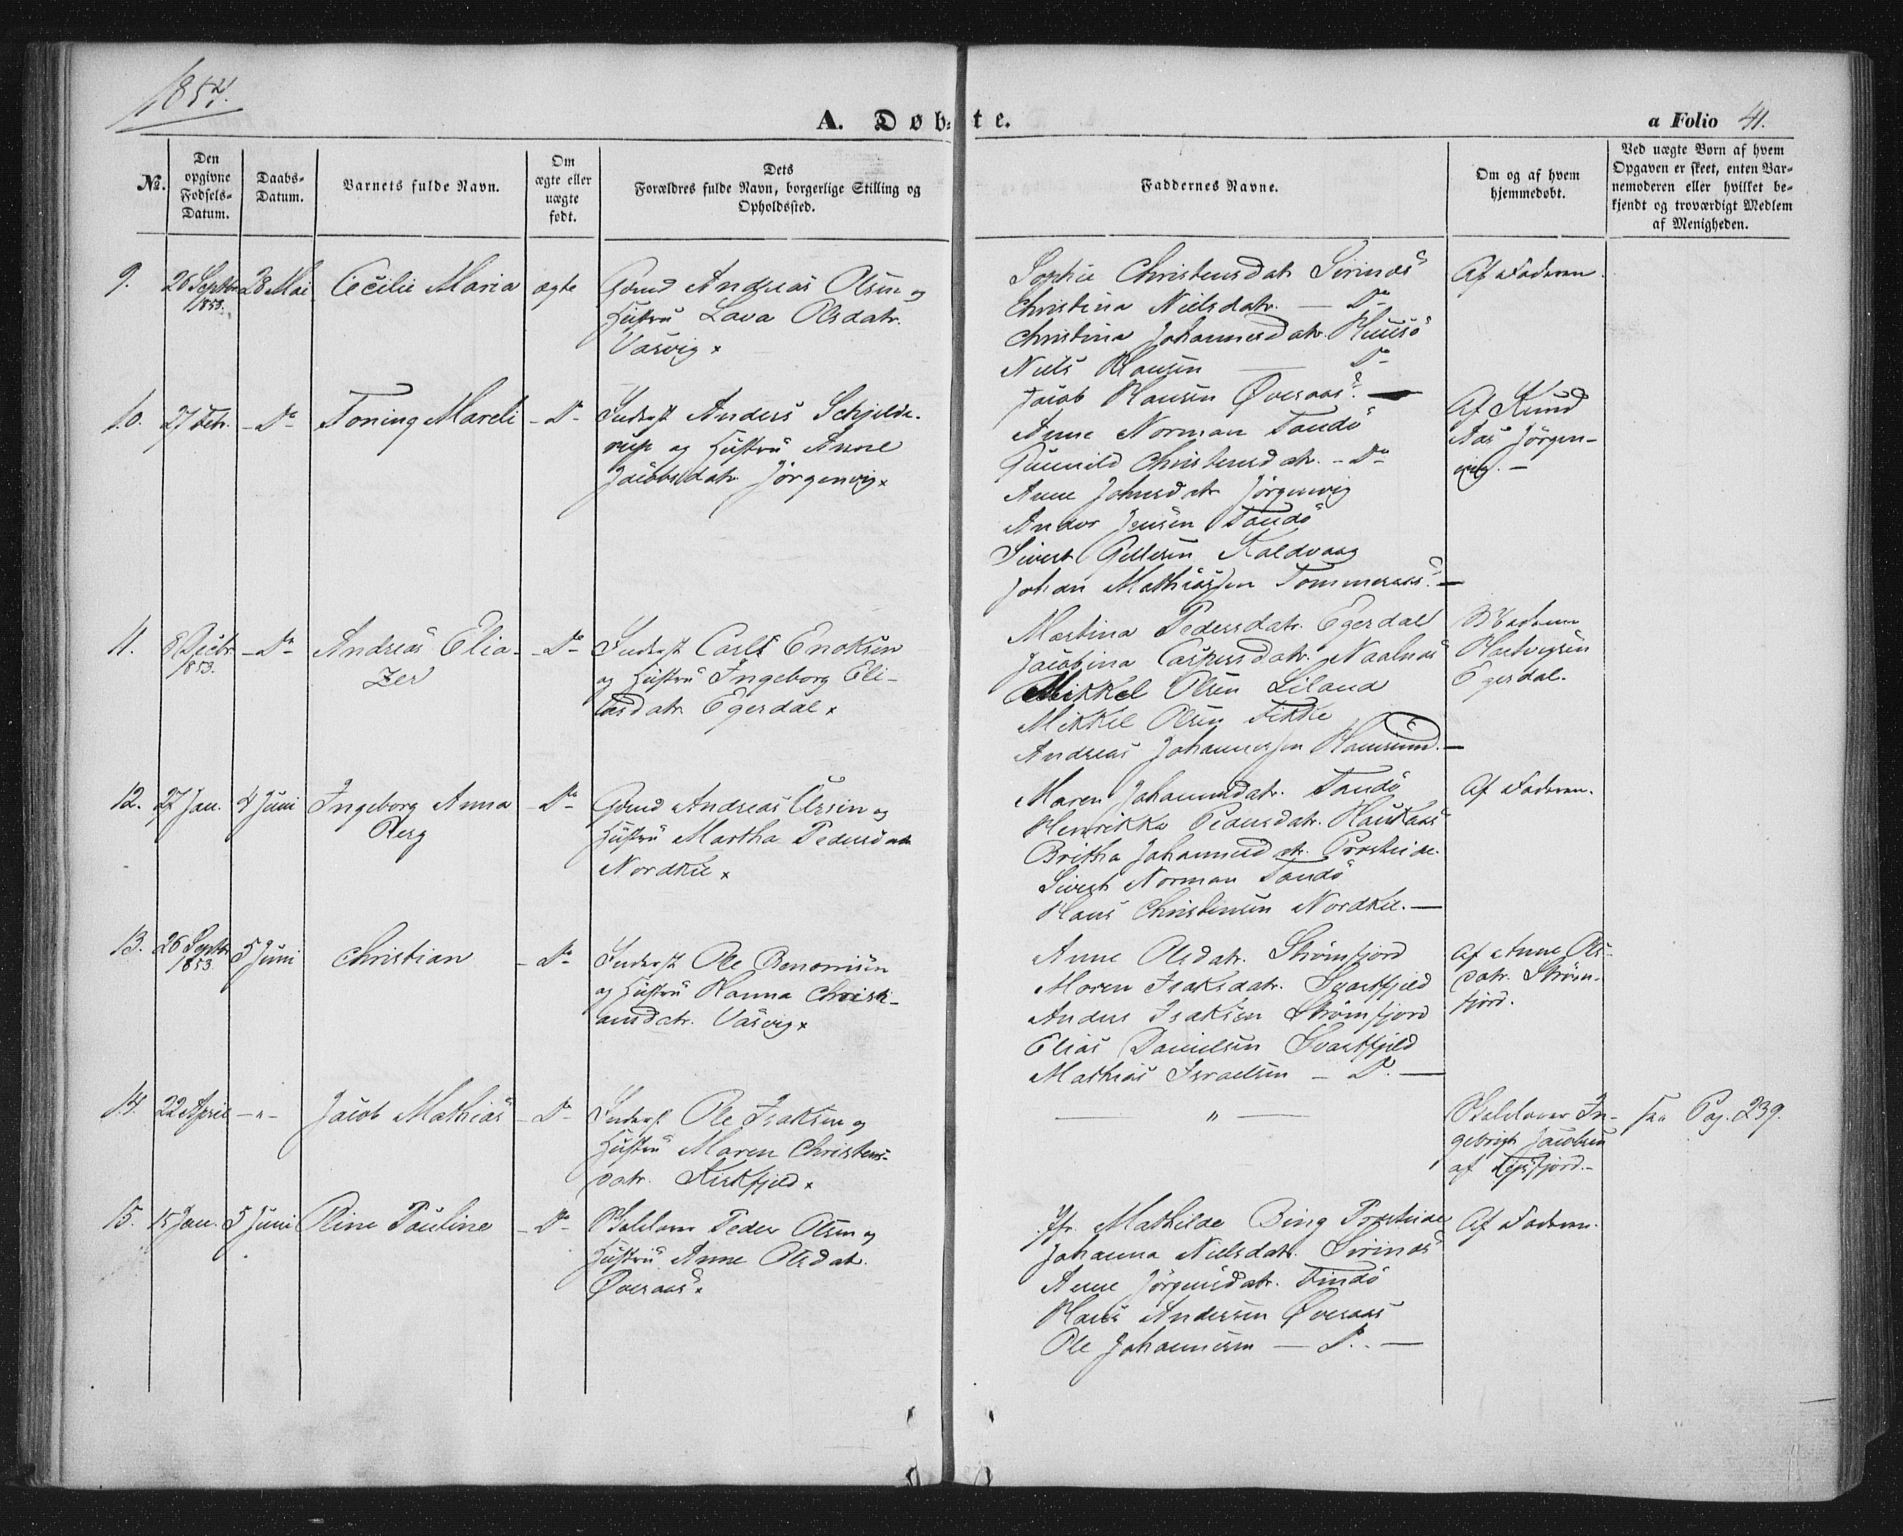 1854.
A. Døbte.
a Folio 41.
No.
Den opgivne Fødsels-Datum.
Daabs-Datum.
Barnets fulde Navn.
Om ægte eller uægte født.
Dets Forældres fulde Navn, borgerlige Stilling og Opholdssted.
Faddernes Navne.
Om og af hvem hjemmedøbt.
Ved uægte Børn af hvem Opgaven er skeet, enten Barnemoderen eller hvilket bekjendt og troværdigt Medlem af Menigheden.
9. 26 Septbr 1853. 28 Mai Cecilie Maria ægte
Gdmd Andreas Olsen og
Hustru Lava Olsdatr.
Vasvig ×
Sophie Christensdatr Sørinæs
Christina Nielsdatr. — Do
Christina Johannesdatr. Huusø
Niels Hansen — Do
Jacob Hansen Øveraas. —
Af Faderen.
10. 27 Febr. Do Toning Mareli Do
Inderst Anders Schjelde-
rup og Hustru Anne
Jacobsdatr Jørgenvig ×
Anne Norman Tandø
Gunnild Christensdatr. — Do
Anne Johnsdatr Jørgenvig
Andor Jensen Tandø
Sivert Pettersen Kaldvaag
Johan Mathiassen Tommeraas. —
Af Knud
Aas Jørgen-
vig. —
11. 8 Decbr 1853. Do Andreas Elia-
zer Do
Inderst Carl Enoksen
og Hustru Ingeborg Eli-
asdatr. Egerdal ×
Martina Pedersdatr. Egerdal
Jacobina Caspersdatr. Naalnæs
Mikkel Olsen Liland
Mikkel Olsen Fikke
Andreas Johannessen Hamsund. —
Hartvigsen
Egerdal.
12. 27 Jan. 4 Juni Ingeborg Anna
Berg Do
Gdmd Andreas Ursin og
Hustru Martha Pedersdatr
Nordkil ×
Maren Johannesdatr. Tandø
Henrikka Pedersdatr. Haukaas
Britha Johannesdatr. Presteide.
Sivert Norman Tandø
Hans Christensen Nordkil. —
Af Faderen.
13. 26 Septbr 1853. 5 Juni Christian Do
Inderst Ole Benonisen
og Hustru Hanna Christi-
ansdatr. Vasvig ×
Anne Olsdatr. Strømfjord
Maren Isaksdatr. Svartfjeld
Anders Isaksen Strømfjord
Elias Danielsen Svartfjeld
Mathias Israelsen — Do. —
Af Anne Ols-
datr. Strøm-
fjord.
14. 22 April — " — Jacob Mathias Do
Inderst Ole Isaksen og
Hustru Maren Christens-
datr. Kirkfjeld ×
— " —
Skolelærer In-
gebrigt Jacobsen
af Tysfjord. —
Pag. 239.
15. 15 Jan. 5 Juni Oline Pauline Do
Peder Olsen og
Hustru Anne Olsdatr.
Øveraas ×
Jfr. Mathilde Bing Presteide
Johanna Nielsdatr. Sørinæs
Anne Jørgensdatr. Findø
Hans Andersen Øveraas
Ole Johannesen — Do. —
Af Faderen.